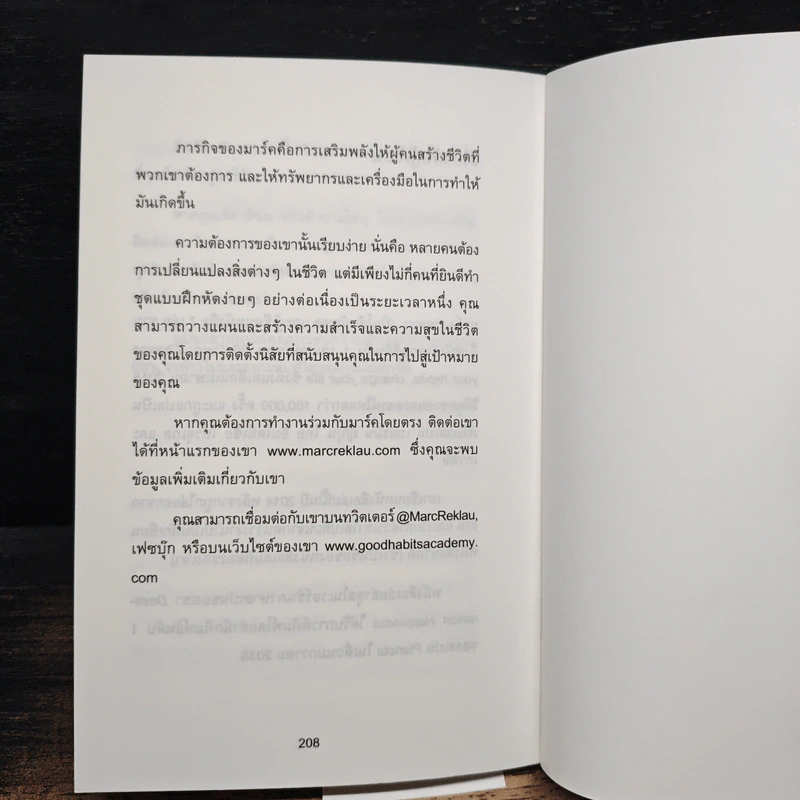 ภารกิจของมาร์คคือการเสริมพลังให้ผู้คนสร้างชีวิตที่
พวกเขาต้องการ และให้ทรัพยากรและเครื่องมือในการทำให้
มันเกิดขึ้น
ความต้องการของเขานั้นเรียบง่าย นั่นคือ หลายคนต้อง
การเปลี่ยนแปลงสิ่งต่างๆ ในชีวิต แต่มีเพียงไม่กี่คนที่ยินดีทำ
ชุดแบบฝึกหัดง่ายๆ อย่างต่อเนื่องเป็นระยะเวลาหนึ่ง คุณ
สามารถวางแผนและสร้างความสำเร็จและความสุขในชีวิต
ของคุณโดยการติดตั้งนิสัยที่สนับสนุนคุณในการไปสู่เป้าหมาย
ของคุณ
หากคุณต้องการทำงานร่วมกับมาร์คโดยตรง ติดต่อเขา
ได้ที่หน้าแรกของเขา www.marcreklau.com ซึ่งคุณจะพบ
ข้อมูลเพิ่มเติมเกี่ยวกับเขา
คุณสามารถเชื่อมต่อกับเขาบนทวิตเตอร์ @MarcReklau,
เฟซบุ๊ก หรือบนเว็บไซต์ของเขา www.goodhabitsacademy.
com
208